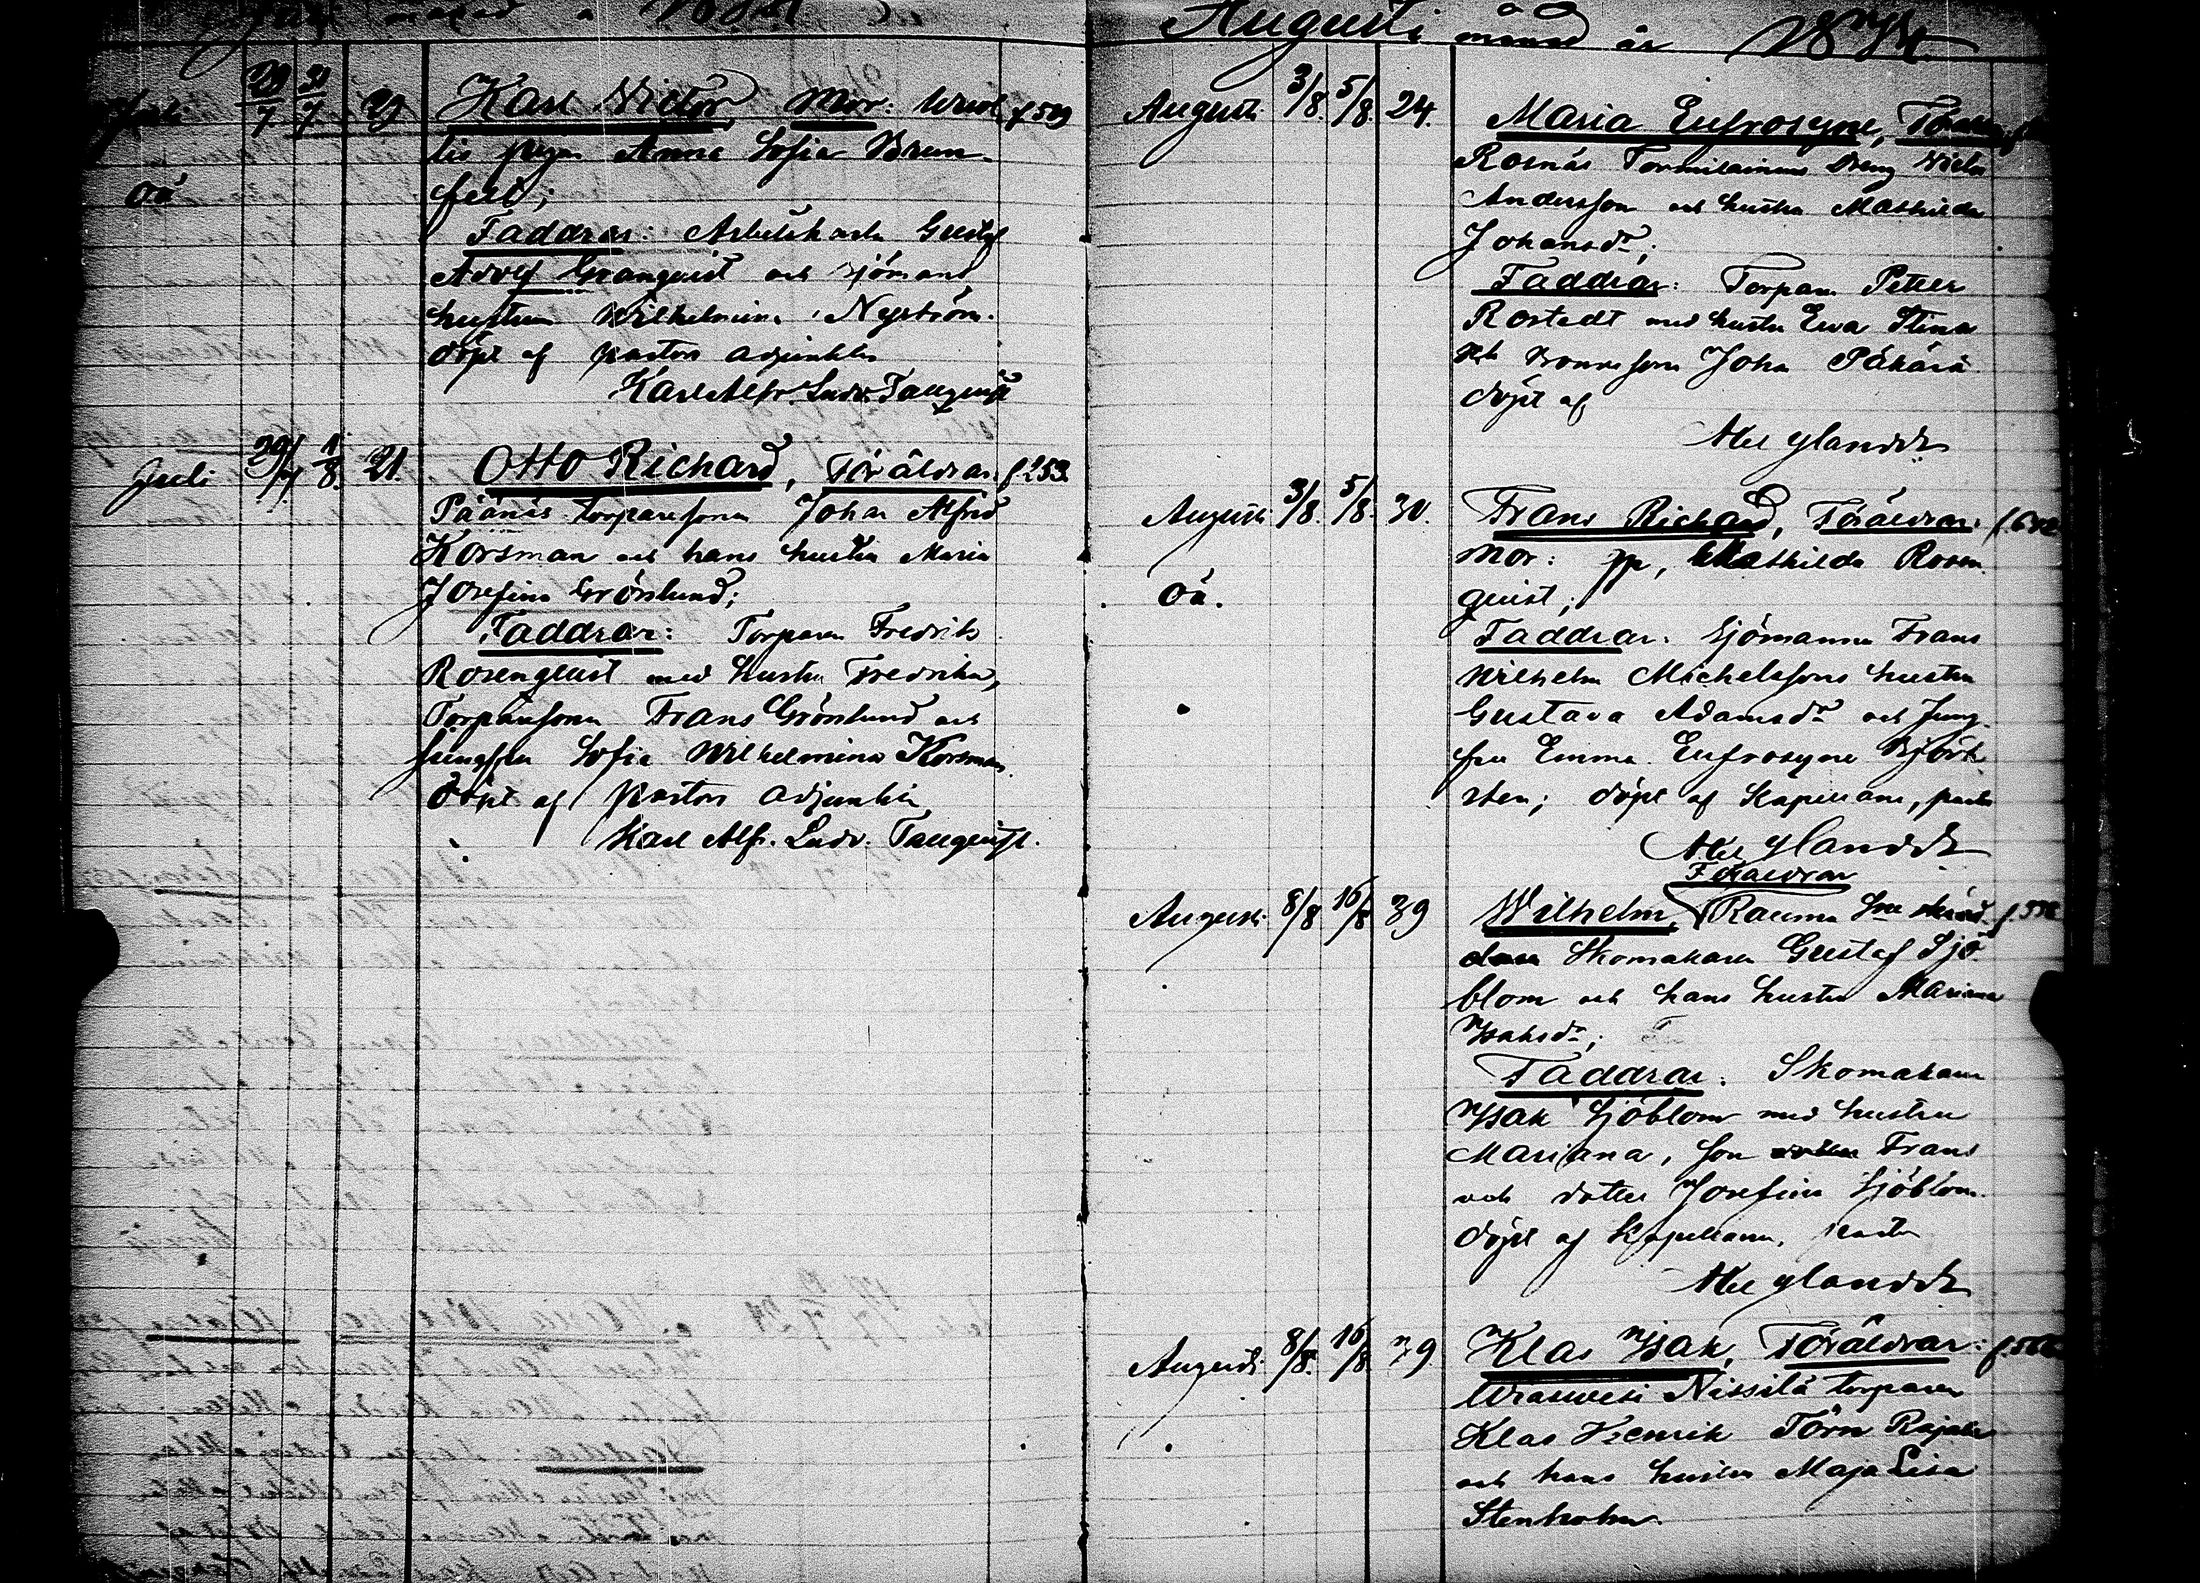 Juli 29/7 31/7 29 Karl Victor, Mor:
pig. Anna Sofia Brun-
Oä
felt;
Faddrar: Arbetskarln Gustaf
Adolf Granqvist och sjömans
hustrun Wilhelmina Nyström.
döpt af pastors adjunkten
Karl Alfr. Ludv. Tallqvist
Juli 30/7 1/8 21. Otto Richard, Föräldrar: f. 253.
Päänäs torparesonen Johan Alfred
Korsman och hans hustru Maria
Josefina Grönlund;
Faddrar: Torparen Fredrik
Rosenqvist med hustru Fredrika,
Torparesonen Frans Grönlund och
jungfru Sofia Wilhelmina Korsman.
döpt af pastors adjunkten
Karl Alf. Ludv. Tallqvist.
Augusti månad år 1874
Augusti 3/8. 5/8. 24. Maria Eufrosyne,
Rosnäs dreng
Andersson och hustru Mathilda
Johansdr;
Faddrar: Torparen Petter
Rostedt med hustru Eva Stina
och bondesonen Johan
döpt af
Augusti 3/8. 5/8. 30. Frans Richard, Föräldrar: f. 642
Mor: pp, Mathilda Rosen
Oä.
quist;
Faddrar: Sjömannen Frans
Wilhelm Michelssons hustru
Gustava Adamsdr och Jung-
fru Emma Eufrosyne Björk
sten; döpt af Kapellanen, past
Föräldrar
Augusti 8/8 16/8 39 Wilhelm, Rauma
Skomakaren Gustaf Sjö
blom och hans hustru Mariana
Isaksdr;
Faddrar: Skomakaren
Isak Sjöblom med hustru
Mariana, son Frans
och dotter Josefina Sjöblom.
döpt af Kapellanen, pastor
Augusti 8/8. 16/8 39 Klas Isak, Föräldrar:
Nissilä torparen
Klas Henrik Törn
och hans hustru Maja Lisa
Stenholm.